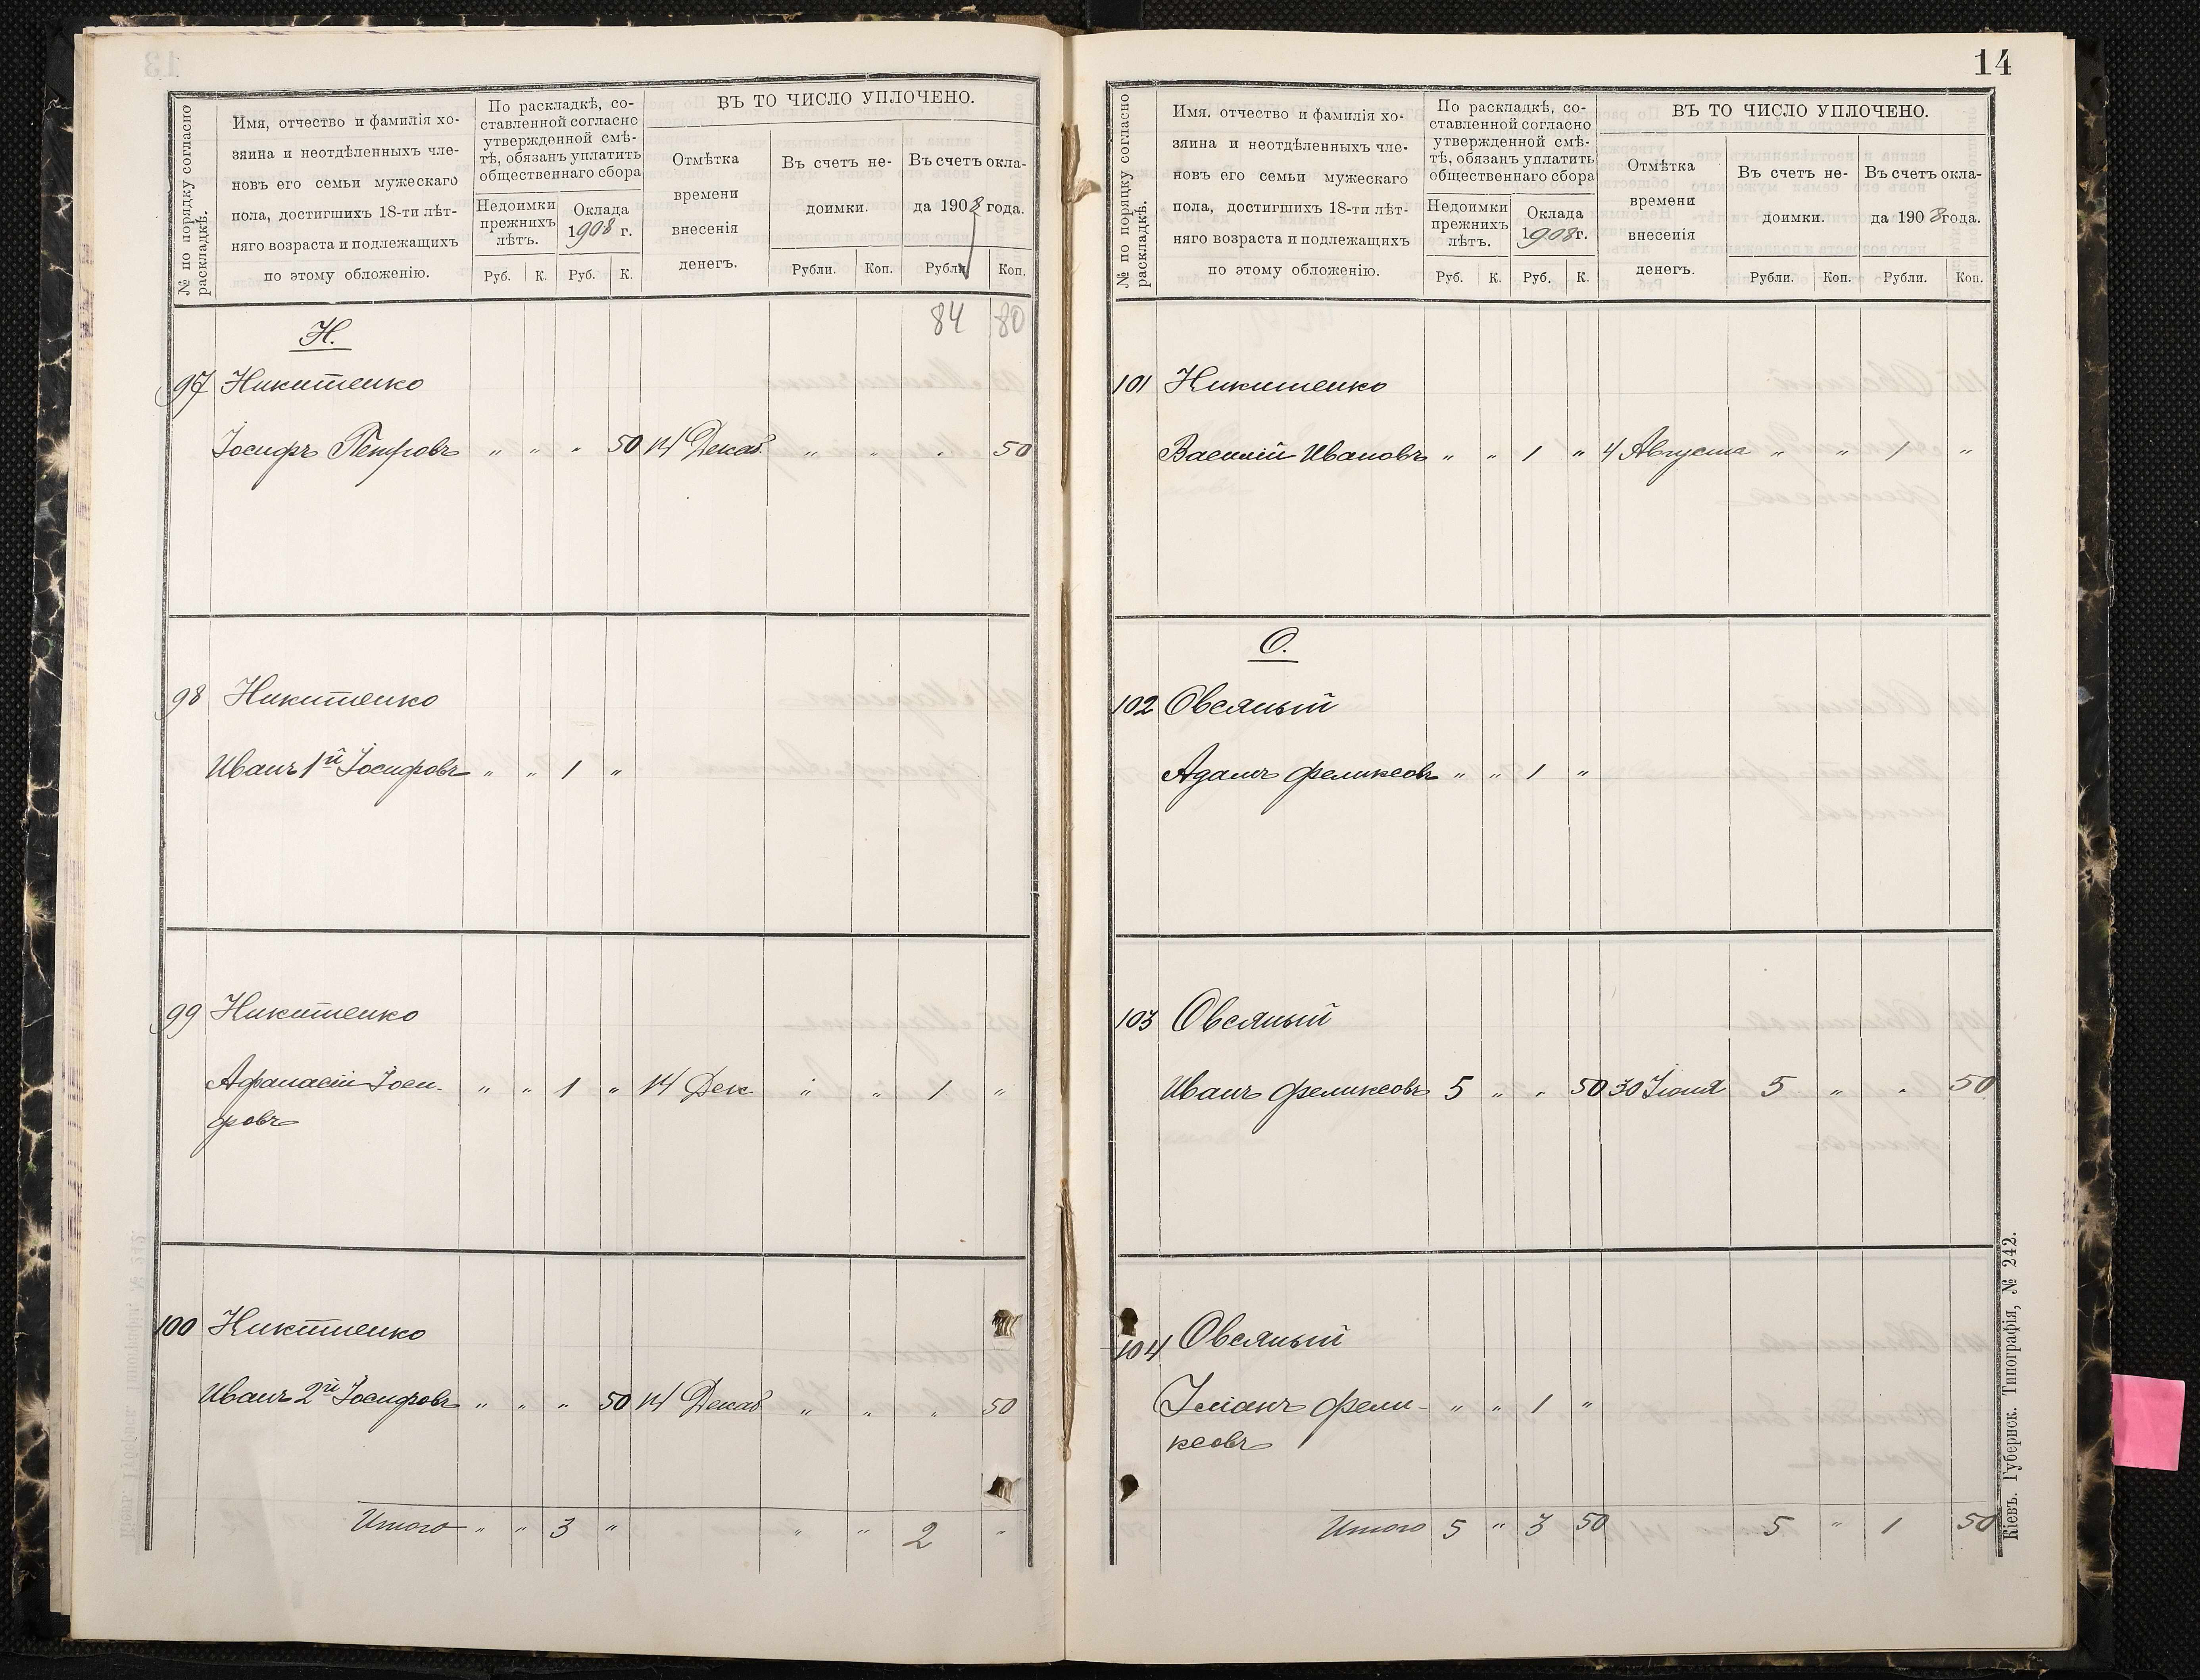 № по порядку согласно раскладкѣ.
Имя, отчество и фамилія хо-
зяина и неотдѣленныхъ чле-
новъ его семьи мужескаго
пола, достигшихъ 18-ти лѣт-
няго возраста и подлежащихъ
по этому обложенію.
По раскладкѣ, со-
ставленной согласно
утвержденной смѣ-
тѣ, обязанъ уплатить
общественнаго сбора
Недоимки
прежнихъ
лѣтъ.
Оклада
1908 г.
Руб. К. Руб. К.
ВЪ ТО ЧИСЛО УПЛОЧЕНО.
Отмѣтка
времени
внесенія
денегъ.
Въ счетъ не-
доимки.
Въ счетъ окла-
да 1908 года.
Рубли. Коп. Рубли. Коп.
Н. 84 80
97 Никитенко
Іосифъ Петровъ " " " 50 14 Декаб. " " " 50
98 Никитенко
Иванъ 1й Іосифовъ " " 1 "
99 Никитенко
Афанасій Іоси- " " 1 " 14 Дек. " " 1 "
фовъ
100 Никитенко
Иванъ 2й Іосифовъ " " " 50 14 Декаб " " " 50
Итого " " 3 " " " 2 "
14
№ по порядку согласно раскладкѣ.
Имя, отчество и фамилія хо-
зяина и неотдѣленныхъ чле-
новъ его семьи мужескаго
пола, достигшихъ 18-ти лѣт-
няго возраста и подлежащихъ
по этому обложенію.
По раскладкѣ, со-
ставленной согласно
утвержденной смѣ-
тѣ, обязанъ уплатить
общественнаго сбора
Недоимки
прежнихъ
лѣтъ.
Оклада
1908 г.
Руб. К. Руб. К.
ВЪ ТО ЧИСЛО УПЛОЧЕНО.
Отмѣтка
времени
внесенія
денегъ.
Въ счетъ не-
доимки.
Въ счетъ окла-
да 1908 года.
Рубли. Коп. Рубли. Коп.
101 Никитенко
Василій Ивановъ " " 1 " 4 Августа " " 1 "
О.
102 Овсяный
Адамъ Феликсовъ " " 1 "
103 Овсяный
Иванъ Феликсовъ 5 " " 50 30 Іюля 5 " " 50
104 Овсяный
Юліанъ Фели- " " 1 "
ксовъ
Итого 5 " 3 50 5 " 1 50
Кіевъ. Губернск. Типографія, № 242.